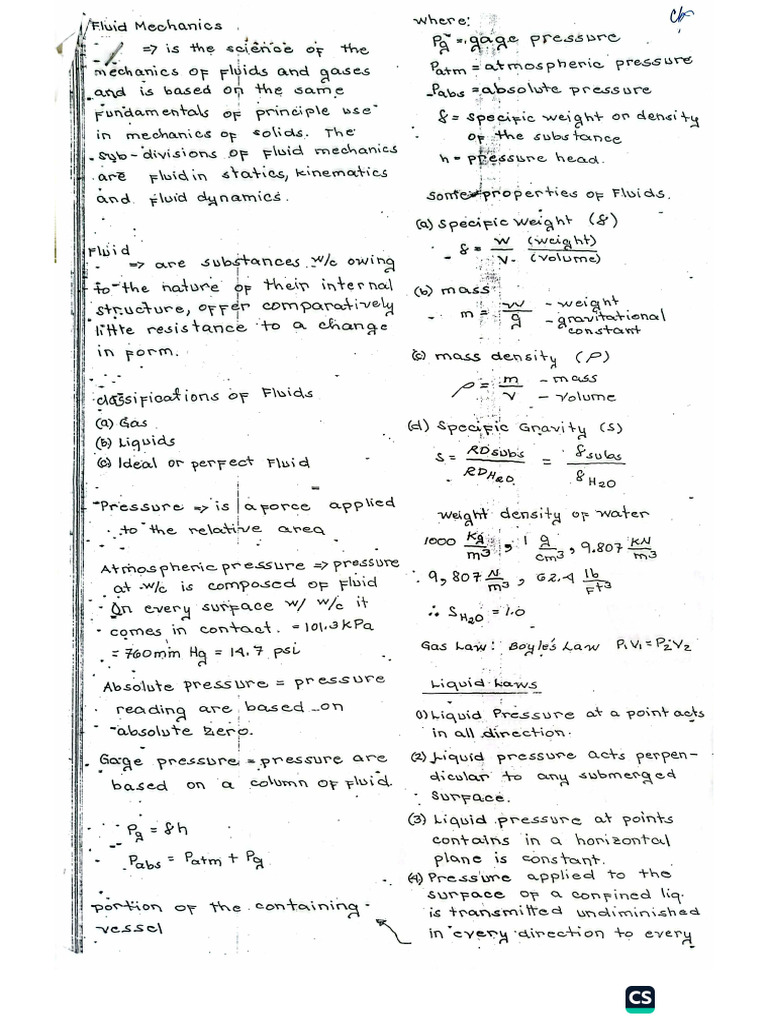 Fluid Mechanics
=> is the science of the
mechanics of fluids and gases
and is based on the same
fundamentals of principle use
in mechanics of solids. The
sub-divisions of fluid mechanics
are fluid in statics, kinematics
and fluid dynamics.
Fluid
=> are substances w/c owing
to the nature of their internal
structure, offer comparatively
little resistance to a change
in form.
Classifications of Fluids
(a) Gas
(b) Liquids
(c) Ideal or perfect Fluid
Pressure => is a force applied
to the relative area
Atmospheric pressure => pressure
at w/c is composed of fluid
On every surface w/ w/c it
comes in contact. = 101.3 kPa
= 760mm Hg = 14.7 psi
Absolute pressure = pressure
reading are based on
absolute zero.
Gage pressure = pressure are
based on a column of fluid.
Pg = 8h
Pabs = Patm + Pg
portion of the containing
vessel
where:
Pg = gage pressure
Patm = atmospheric pressure
Pabs = absolute pressure
8 = specific weight or density
of the substance
h = pressure head.
Some properties of Fluids.
(a) Specific weight (8)
8 = W/V (weight)/(volume)
(b) mass
m = W/g - weight
- gravitational
constant
(c) mass density (ρ)
ρ = m/v - mass
- volume
(d) Specific Gravity (S)
S = RDsubs/RDH2O = 8subs/8H2O
Weight density of water
1000 Kg/m3, 1 g/cm3, 9.807 KN/m3
9,807 N/m3, 62.4 lb/ft3
∴ SH2O = 1.0
Gas Law: Boyle's Law P1V1 = P2V2
Liquid Laws
(1) Liquid Pressure at a point acts
in all direction.
(2) Liquid pressure acts perpen-
dicular to any submerged
surface.
(3) Liquid pressure at points
contains in a horizontal
plane is constant.
(4) Pressure applied to the
surface of a confined liq.
is transmitted undiminished
in every direction to every
CS